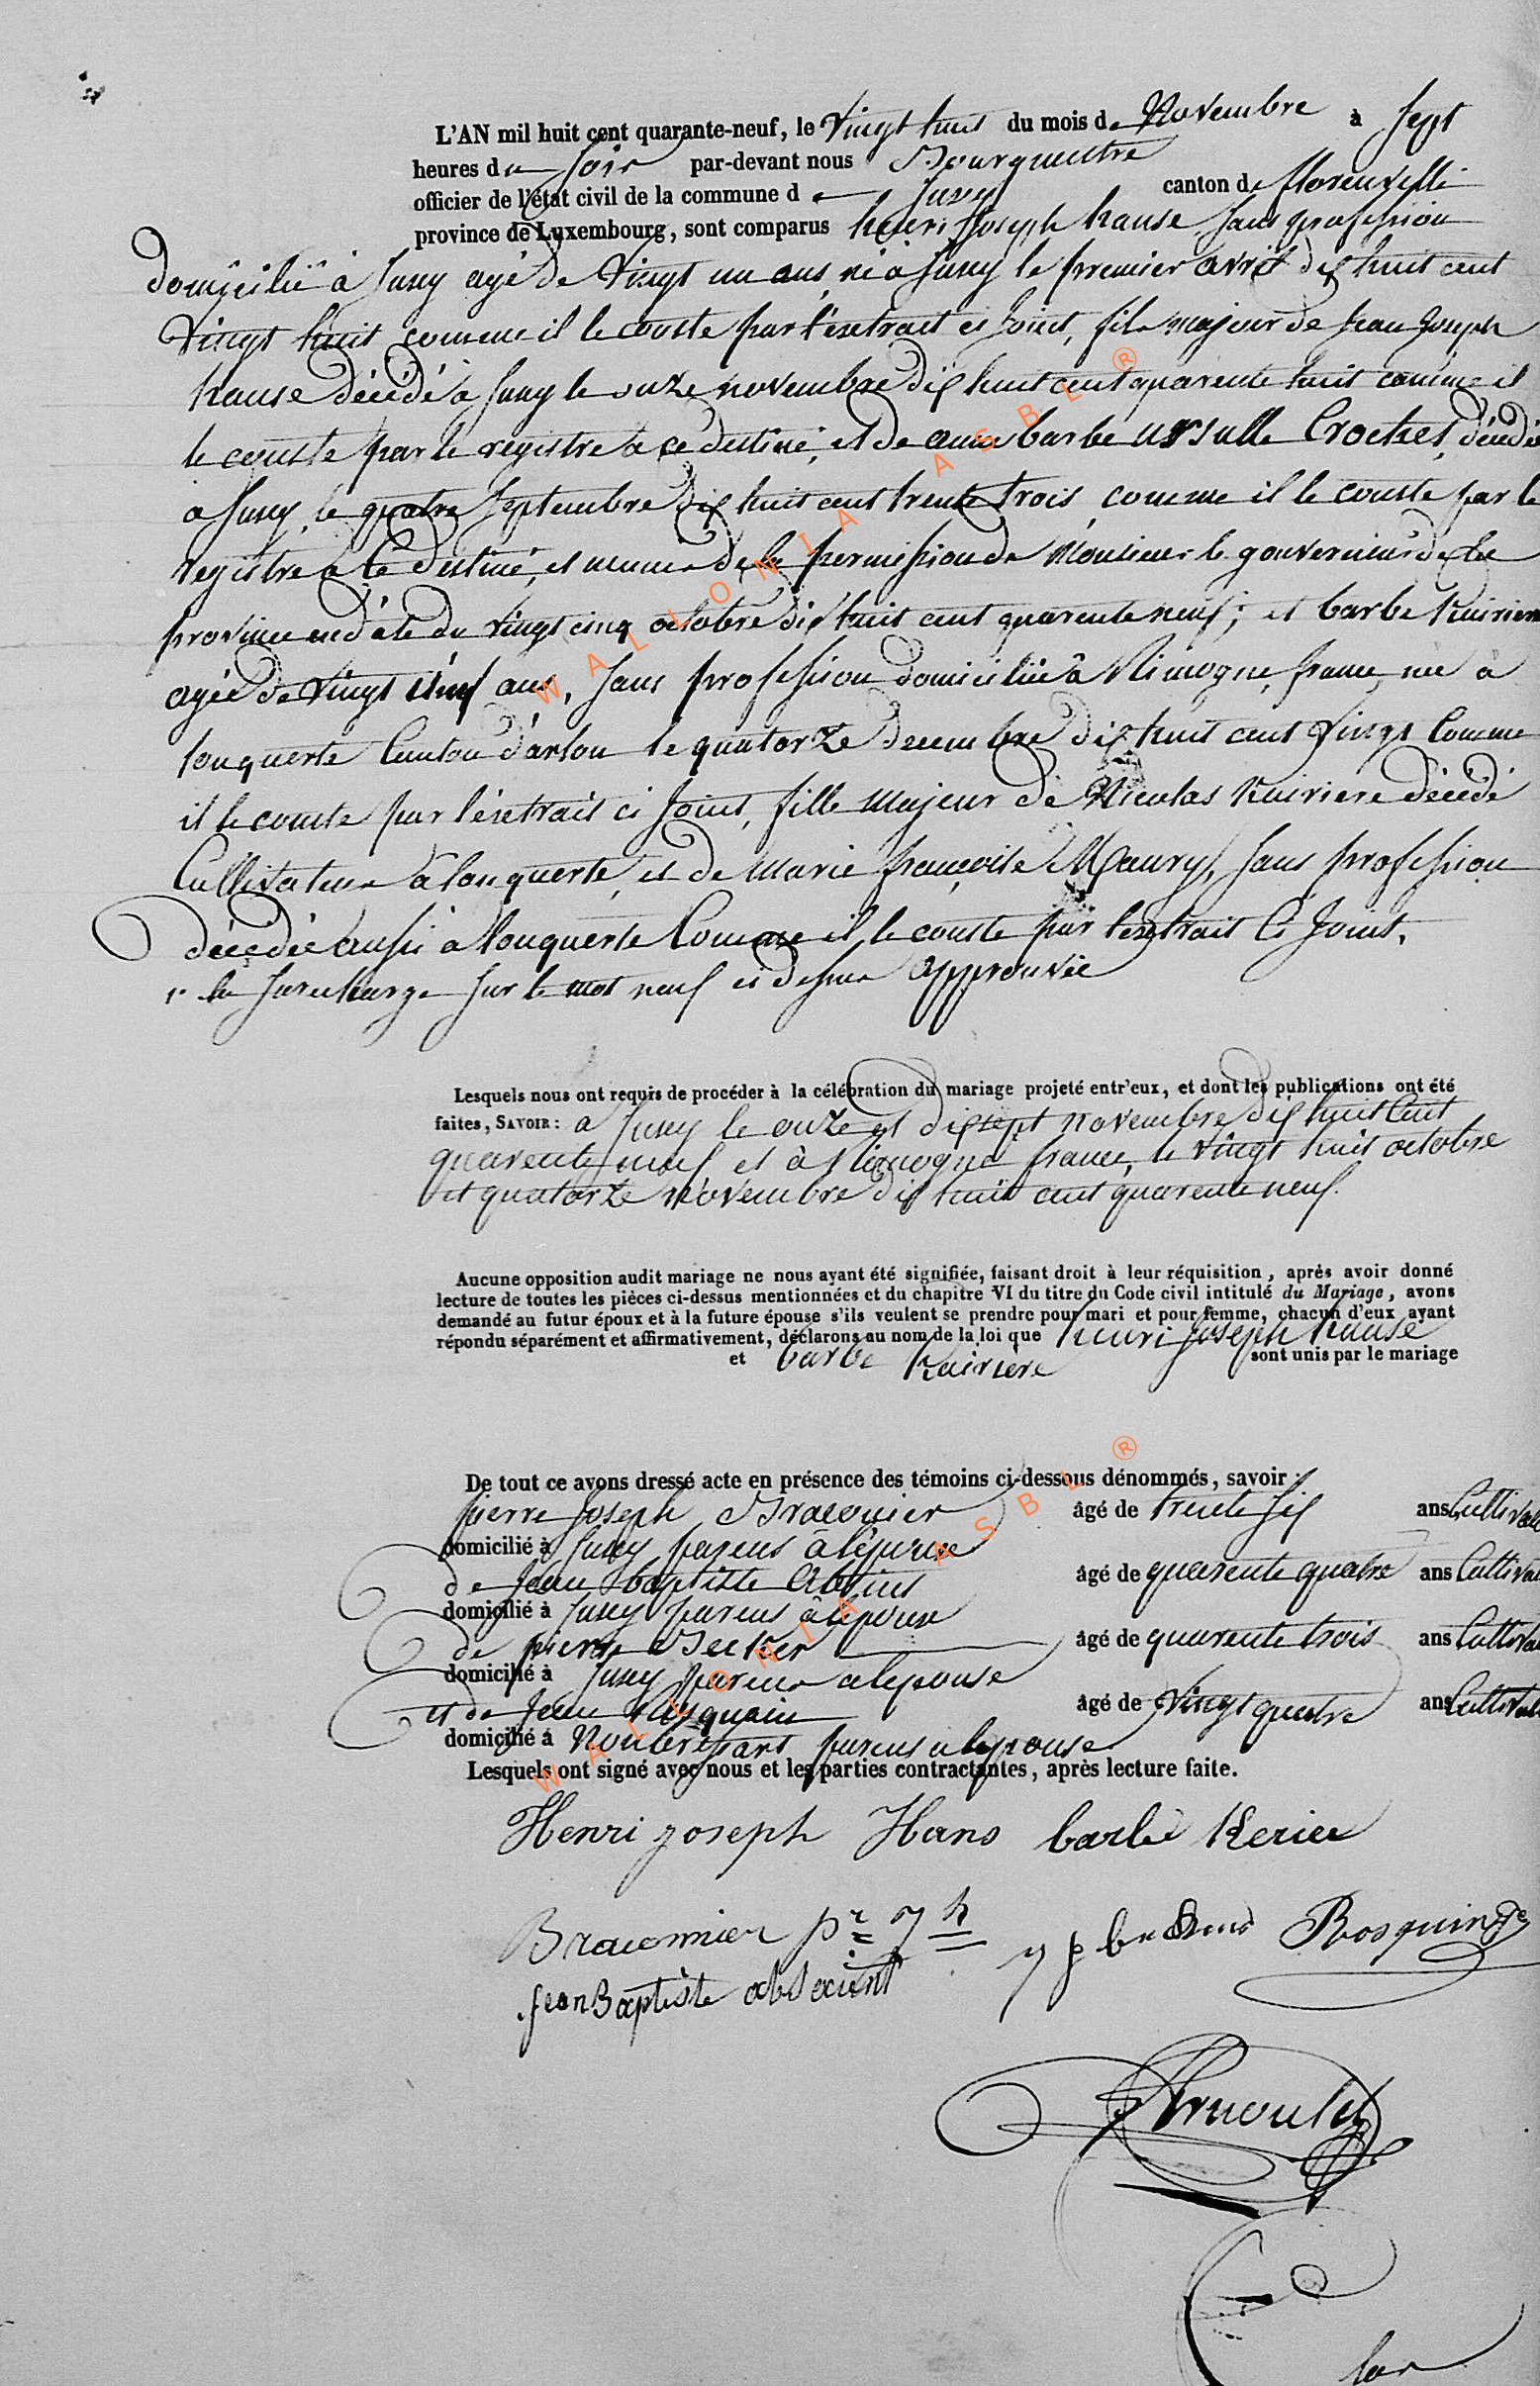 L'AN mil huit cent quarante-neuf, le Vingt huit du mois de Novembre à sept
heures du soir par-devant nous Bourguestre
officier de l'état civil de la commune de Juzy canton de florenville
province de Luxembourg, sont comparus henri Joseph hause sans profession
domicilié à Jusey agé de Vingt un ans, né a Jusey le premier avril dix huit cent
Vingt huit comme il le conste par l'extrait ci Joint, fils majeur de Jean Joseph
hause décédé à Jusey le onze novembre dix huit cent quarente huit comme il
le conste par le registre a ce destiné, et de anne barbe ursulle Crochet, décédé
a Jusey, le quatre Septembre dix huit cent trente trois, comme il le conste par le
registre a ce destiné, et muni de la permission de Monsieur le gouverneur de la
province en date du vingt cinq octobre dix huit cent quarente neuf; et barbe Kairiere
agée de Vingt neuf ans, sans profession domiciliée à Rimogne, france, née à
touquerte Canton d'arlon le quatorze decembre dix huit cent Vingt Comme
il le conste par l'extrait ci Joint, fille Majeur de Nicolas Kairiere décédé
Cultivateur à touquerte, et de Marie françoise Maury, sans profession
décédée aussi à touquerte Comme il le conste par l'extrait Ci Joint.
la surcharge sur le mot neuf ci dessus approuvée
Lesquels nous ont requis de procéder à la célébration du mariage projeté entr'eux, et dont les publications ont été
faites, SAVOIR: a Jusey le onze et dix sept novembre dix huit Cent
quarente neuf et à Rimogne france, le vingt huit octobre
et quatorze novembre dix huit cent quarente neuf.
Aucune opposition audit mariage ne nous ayant été signifiée, faisant droit à leur réquisition, après avoir donné
lecture de toutes les pièces ci-dessus mentionnées et du chapitre VI du titre du Code civil intitulé du Mariage, avons
demandé au futur époux et à la future épouse s'ils veulent se prendre pour mari et pour femme, chacun d'eux ayant
répondu séparément et affirmativement, déclarons au nom de la loi que henri Joseph hause
et barbe Kairiere sont unis par le mariage
De tout ce avons dressé acte en présence des témoins ci-dessous dénommés, savoir:
pierre Joseph Braconier âgé de trente six ans Cultivate
domicilié à Jusey parens à l'épouse
de Jean baptiste Absins âgé de quarente quatre ans Cultivat
domicilié à Jusey parens à lépoux
de pierre Becker âgé de quarente trois ans Cultivat
domicilié à Jusey parens a lepouse
et de Jean Rosquain âgé de Vingt quatre ans Cultivat
domicilié à Nonbressart parens a lepouse
Lesquels ont signé avec nous et les parties contractantes, après lecture faite.
Henri joseph Hans barbe Kerier
Braconnier pr j h Rosquin
jean Baptiste absaint
Arnould
WALLONIA ASBL ®
WALLONIA ASBL ®